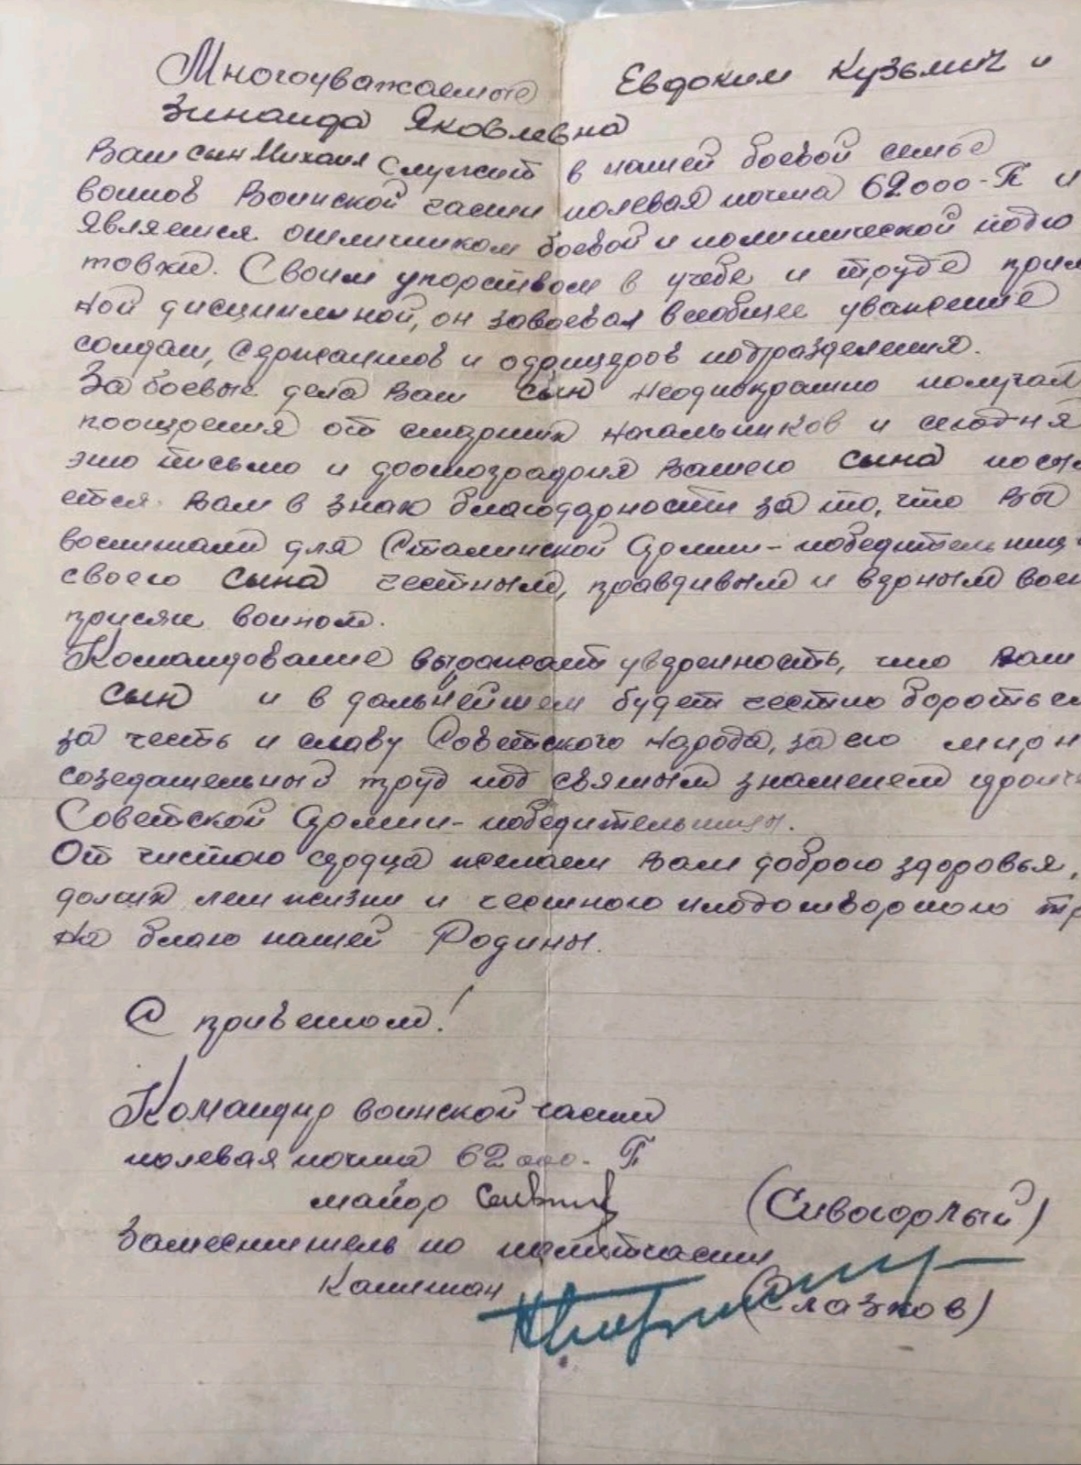 Многоуважаемые Евдоким Кузьмич и
Зинаида Яковлевна
Ваш сын Михаил служит в нашей боевой семье
воинов Воинской части полевая почта 62000-П и
является отличником боевой и политической подго
товки. Своим упорством в учебе и труде прим
ной дисциплиной, он завоевал всеобщее уважение
солдат, сержантов и офицеров подразделения.
За боевые дела Ваш сын неоднократно получал
поощрения от старших начальников и сегодня
это письмо и фотография Вашего сына посы
ется Вам в знак благодарности за то, что Вы
воспитали для Сталинской Армии-победительниц
своего сына честным, правдивым и верным воен
присяги воином.
Командование выражает уверенность, что Ваш
сын и в дальнейшем будет честно бороться
за честь и славу Советского Народа, за его мирн
созидательный труд под святым знаменем
Советской Армии-победительницы.
От чистого сердца желаем Вам доброго здоровья,
долгих лет жизни и честного плодотворного тр
на благо нашей Родины.
С приветом!
Командир воинской части
полевая почта 62000-П
майор (Сивогорлый)
Заместитель по политчасти
Капитан (Глазков)